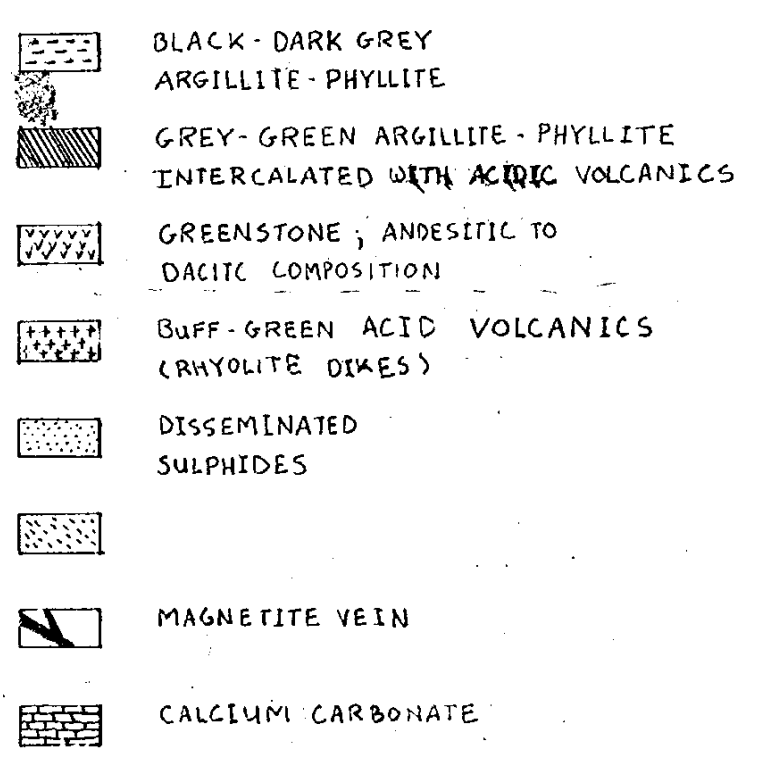 BLACK - DARK GREY
ARGILLITE - PHYLLITE
GREY - GREEN ARGILLITE - PHYLLITE
INTERCALATED WITH ACIDIC VOLCANICS
GREENSTONE ; ANDESITIC TO
DACITC COMPOSITION
BUFF - GREEN ACID VOLCANICS
(RHYOLITE DIKES)
DISSEMINATED
SULPHIDES
MAGNETITE VEIN
CALCIUM CARBONATE